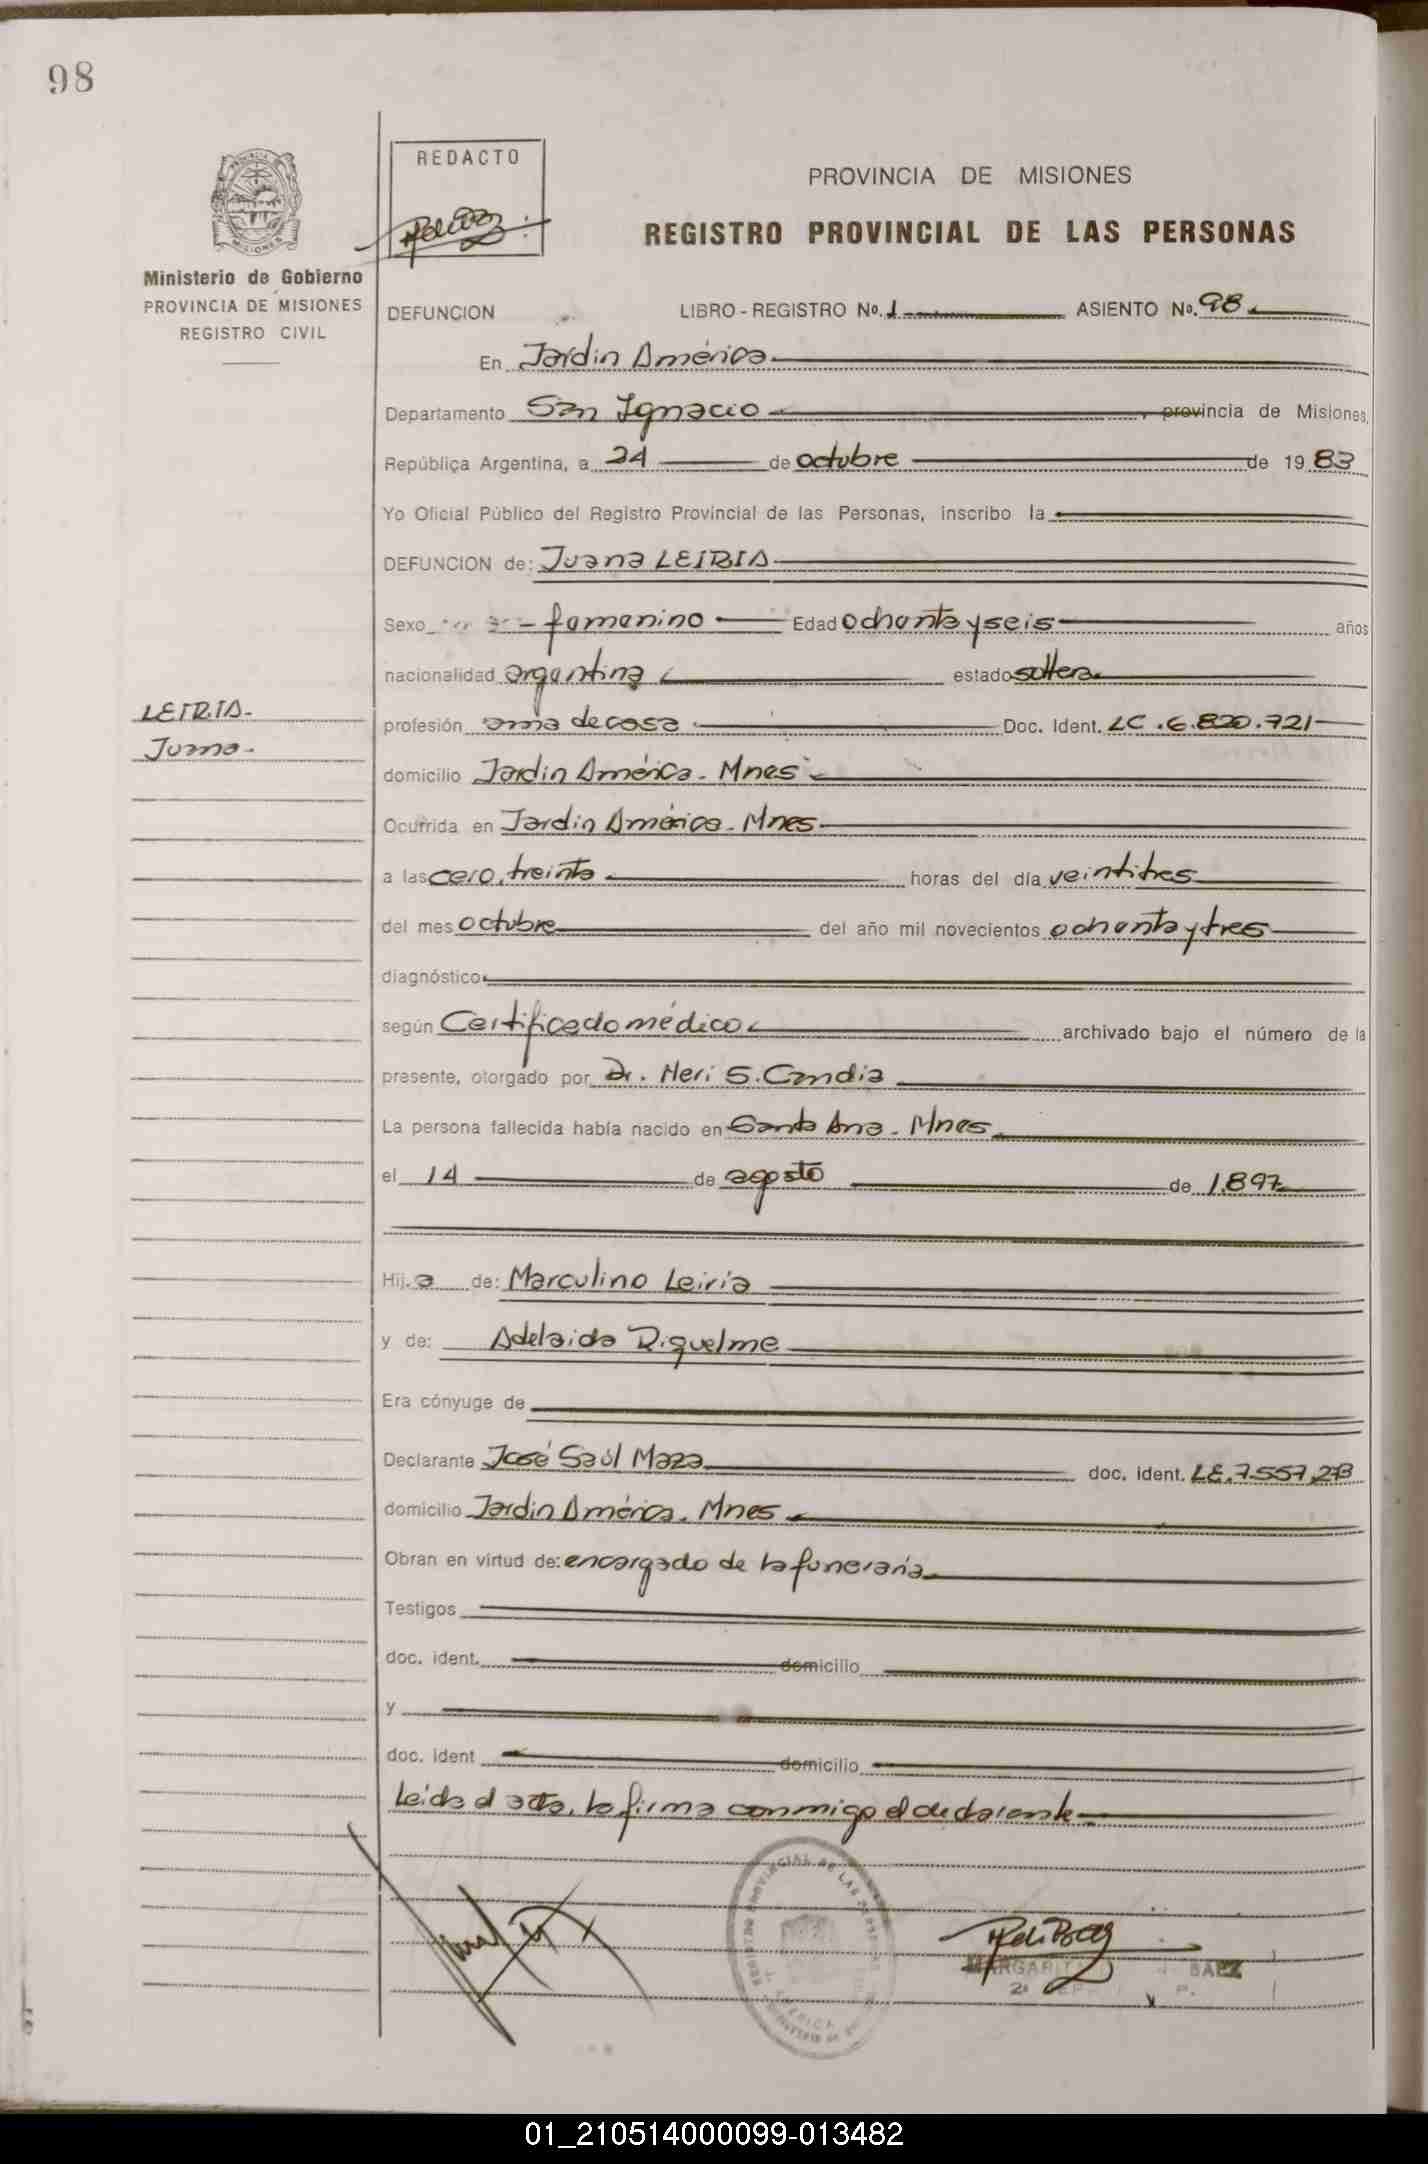 98
REDACTO
PROVINCIA DE MISIONES
REGISTRO PROVINCIAL DE LAS PERSONAS
Ministerio de Gobierno
PROVINCIA DE MISIONES
REGISTRO CIVIL
DEFUNCION LIBRO - REGISTRO No. 1 ASIENTO No. 98
En Jardin América
Departamento San Ignacio, provincia de Misiones,
República Argentina, a 24 de octubre de 19 83
Yo Oficial Público del Registro Provincial de las Personas, inscribo la
DEFUNCION de: Juana LEIRIA
Sexo femenino Edad ochenta y seis años
nacionalidad argentina estado soltera
LEIRIA.
Juana.
profesión ama de casa Doc. Ident. LC. 6.820.721
domicilio Jardin América. Mnes
Ocurrida en Jardin América. Mnes
a las cero, treinta horas del día veintitres
del mes octubre del año mil novecientos ochenta y tres
diagnóstico
según Certificado médico archivado bajo el número de la
presente, otorgado por Dr. Neri S. Candia
La persona fallecida había nacido en Santa Ana. Mnes
el 14 de agosto de 1.897
Hij.a de: Marculino Leiria
y de: Adelaida Riquelme
Era cónyuge de
Declarante José Saúl Maza doc. ident. LE. 7.557.213
domicilio Jardin América. Mnes
Obran en virtud de: encargado de la funeraria
Testigos
doc. ident. domicilio
y
doc. ident domicilio
Leida el acta, la firma conmigo el declarante
REGISTRO PROVINCIAL DE LAS PERSONAS
MARGARITA BAEZ
01_210514000099-013482